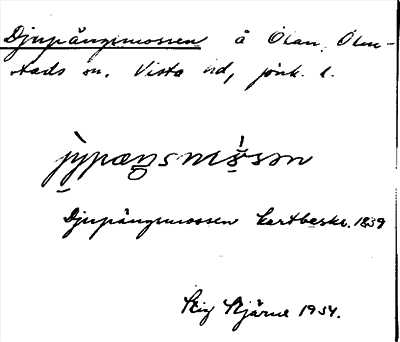 Djupängsmossen å Ölan, Ölm-
stads sn. Vista hd, jönk. l.
jỳpæŋsmɷ̀sən
Djupängsmossen kartbeskr. 1859
Stig Stjärne 1934.